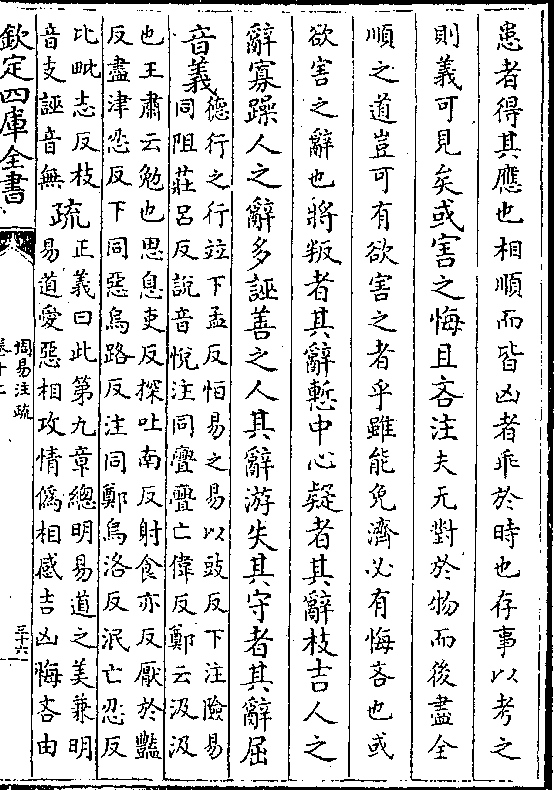 患者得其應也相順而皆凶者乖於時也存事以考之
則義可見矣或害之悔且吝注夫无對於物而後盡全
順之道豈可有欲害之者乎雖能免濟必有悔吝也或
欲害之辭也將叛者其辭慙中心疑者其辭枝吉人之
辭寡躁人之辭多誣善之人其辭游失其守者其辭屈
音義
德行之行竝下孟反怕易之易以豉反下注險易
同阻莊呂反説音悦注同亹亹亡偉反鄭云汲汲
也王肅云勉也思息吏反探吐南反射食亦反厭於豔
反盡津忍反下同惡烏路反注同鄭烏洛反泯亡忍反
比毗志反枝
音支誣音無
疏
正義曰此第九章總明易道之美兼明
易道愛惡相攻情僞相感吉凶悔吝由
欽定四庫全書
周易注疏
卷十二
三十六